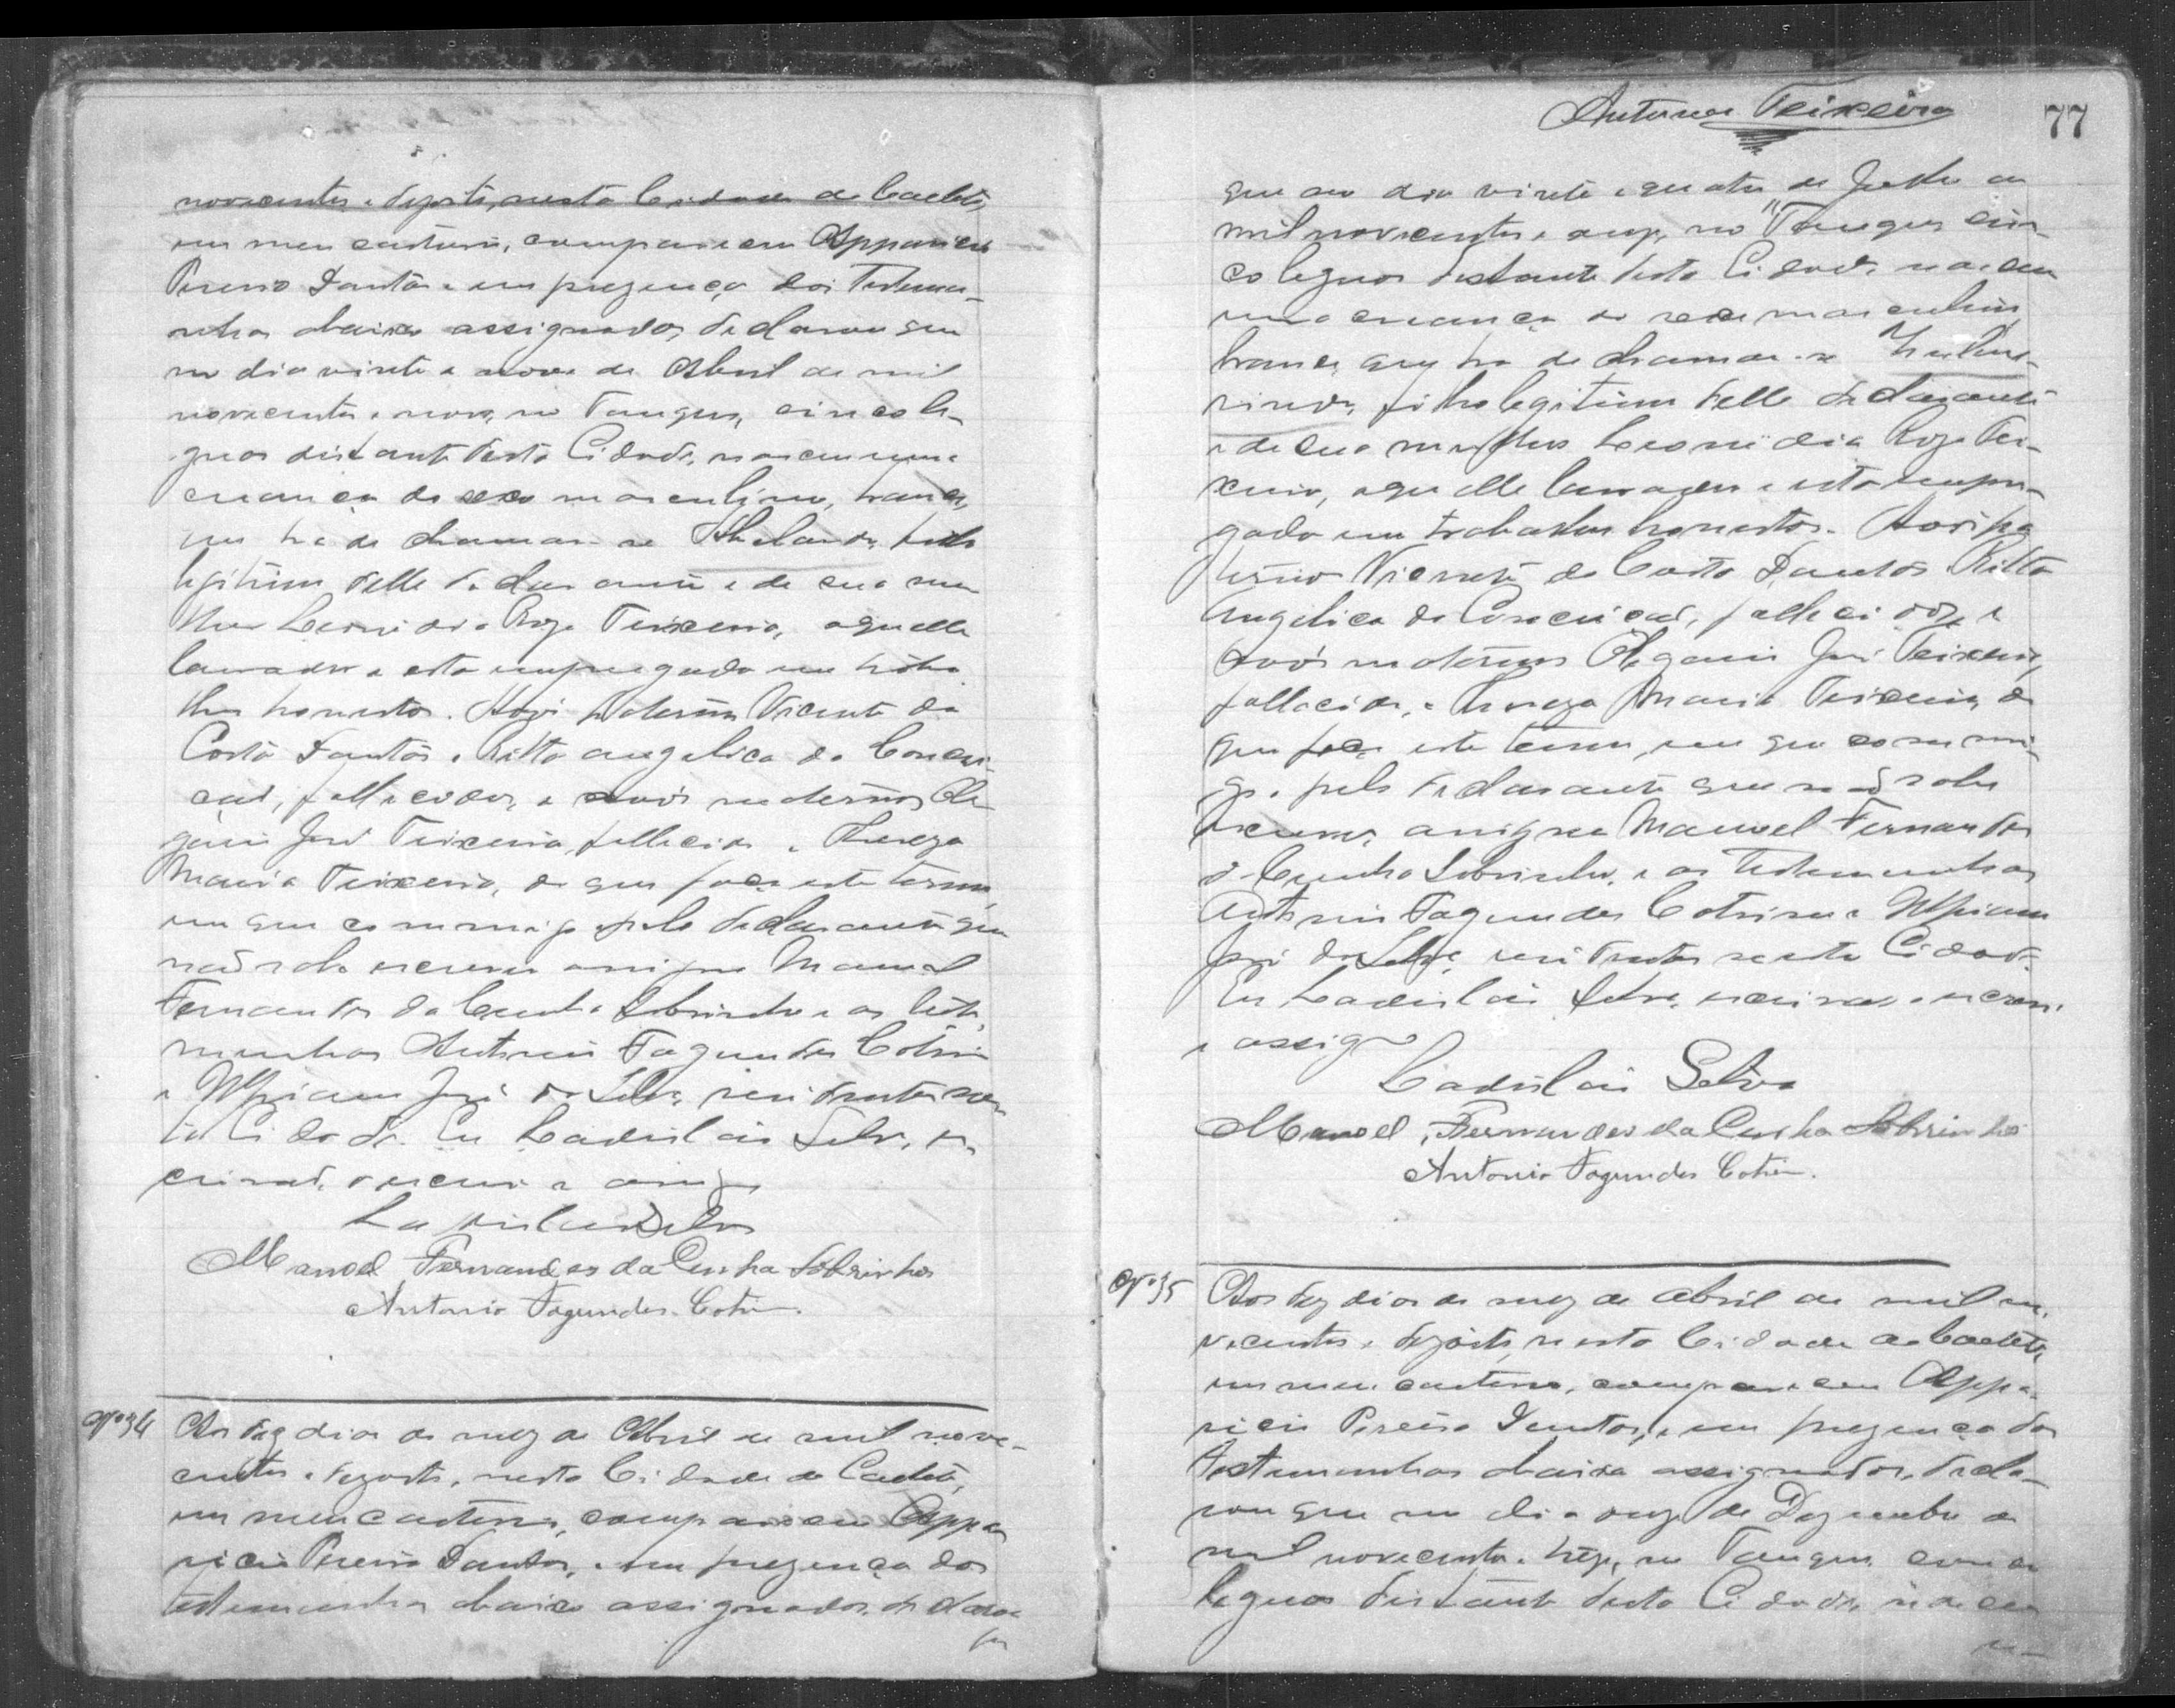 novecentos e dezoito, nesta Cidade de Caeteté,
em meu cartorio, compareceu Apparicio
Pereira Dantas e em presença das testemu-
nhas abaixo assignadas declarou que
no dia vinte e nove de Abril de mil
novecentos e nove, no Tanque, cinco le-
guas distante desta Cidade, nasceu uma
creança do sexo masculino, branca,
que ha de chamar-se filho
legitimo delle declarante e de sua mu-
lher Leonidia Roza Teixeira, aquelle
lavrador e esta empregada em traba-
lhos honestos. Avós paternos Vicente da
Costa Dantas e Ritta Angelica da Concei-
ção, fallecidos, e avós maternos Ole-
gario José Teixeira, fallecido e Thereza
Maria Teixeira, do que faço este termo,
em que commigo e pelo declarante que
não sabe escrever assigna Manoel
Fernandes da Cunha Sobrinho e as teste-
munhas Antonio Fagundes Cotrim
e José da Silva, residentes nes-
ta Cidade. Eu Ladislau Silva, es-
crivão, o escrevi e assigno
Ladislau Silva
Manoel Fernandes da Cunha Sobrinho
Antonio Fagundes Cotrim.
Nº 34 Aos dez dias do mez de Abril de mil nove-
centos e dezoito, nesta Cidade de Caeteté,
em meu cartorio, compareceu Appa-
ricio Pereira Dantas, e em presença das
testemunhas abaixo assignadas, declarou
que
Antunes Teixeira
77
que no dia vinte e quatro de Junho de
mil novecentos e onze, no Tanque cin-
co leguas distante desta Cidade, nasceu
uma creança do sexo masculino,
branca, que ha de chamar-se
filho legitimo delle declarante
e de sua mulher Leonidia Roza Tei-
xeira, aquelle lavrador e esta empre-
gada em trabalhos honestos. Avós pa-
ternos Vicente da Costa Dantas e Ritta
Angelica da Conceição, fallecidos, e
avós maternos Olegario José Teixeira,
fallecido, e Thereza Maria Teixeira, do
que faço este termo, em que commi-
go e pelo declarante que não sabe
escrever, assigna Manoel Fernandes
da Cunha Sobrinho, e as testemunhas
Antonio Fagundes Cotrim e
José da Silva, residentes nesta Cidade.
Eu Ladislau Silva, escrivão o escrevi
e assigno
Ladislau Silva
Manoel Fernandes da Cunha Sobrinho
Antonio Fagundes Cotrim.
Nº 35 Aos dez dias do mez de Abril de mil no-
vecentos e dezoito, nesta Cidade de Caeteté,
em meu cartorio, compareceu Appa-
ricio Pereira Dantas, e em presença das
testemunhas abaixo assignadas, decla-
rou que no dia onze de Dezembro de
mil novecentos e treze, no Tanque cinco
leguas distante desta Cidade, nasceu